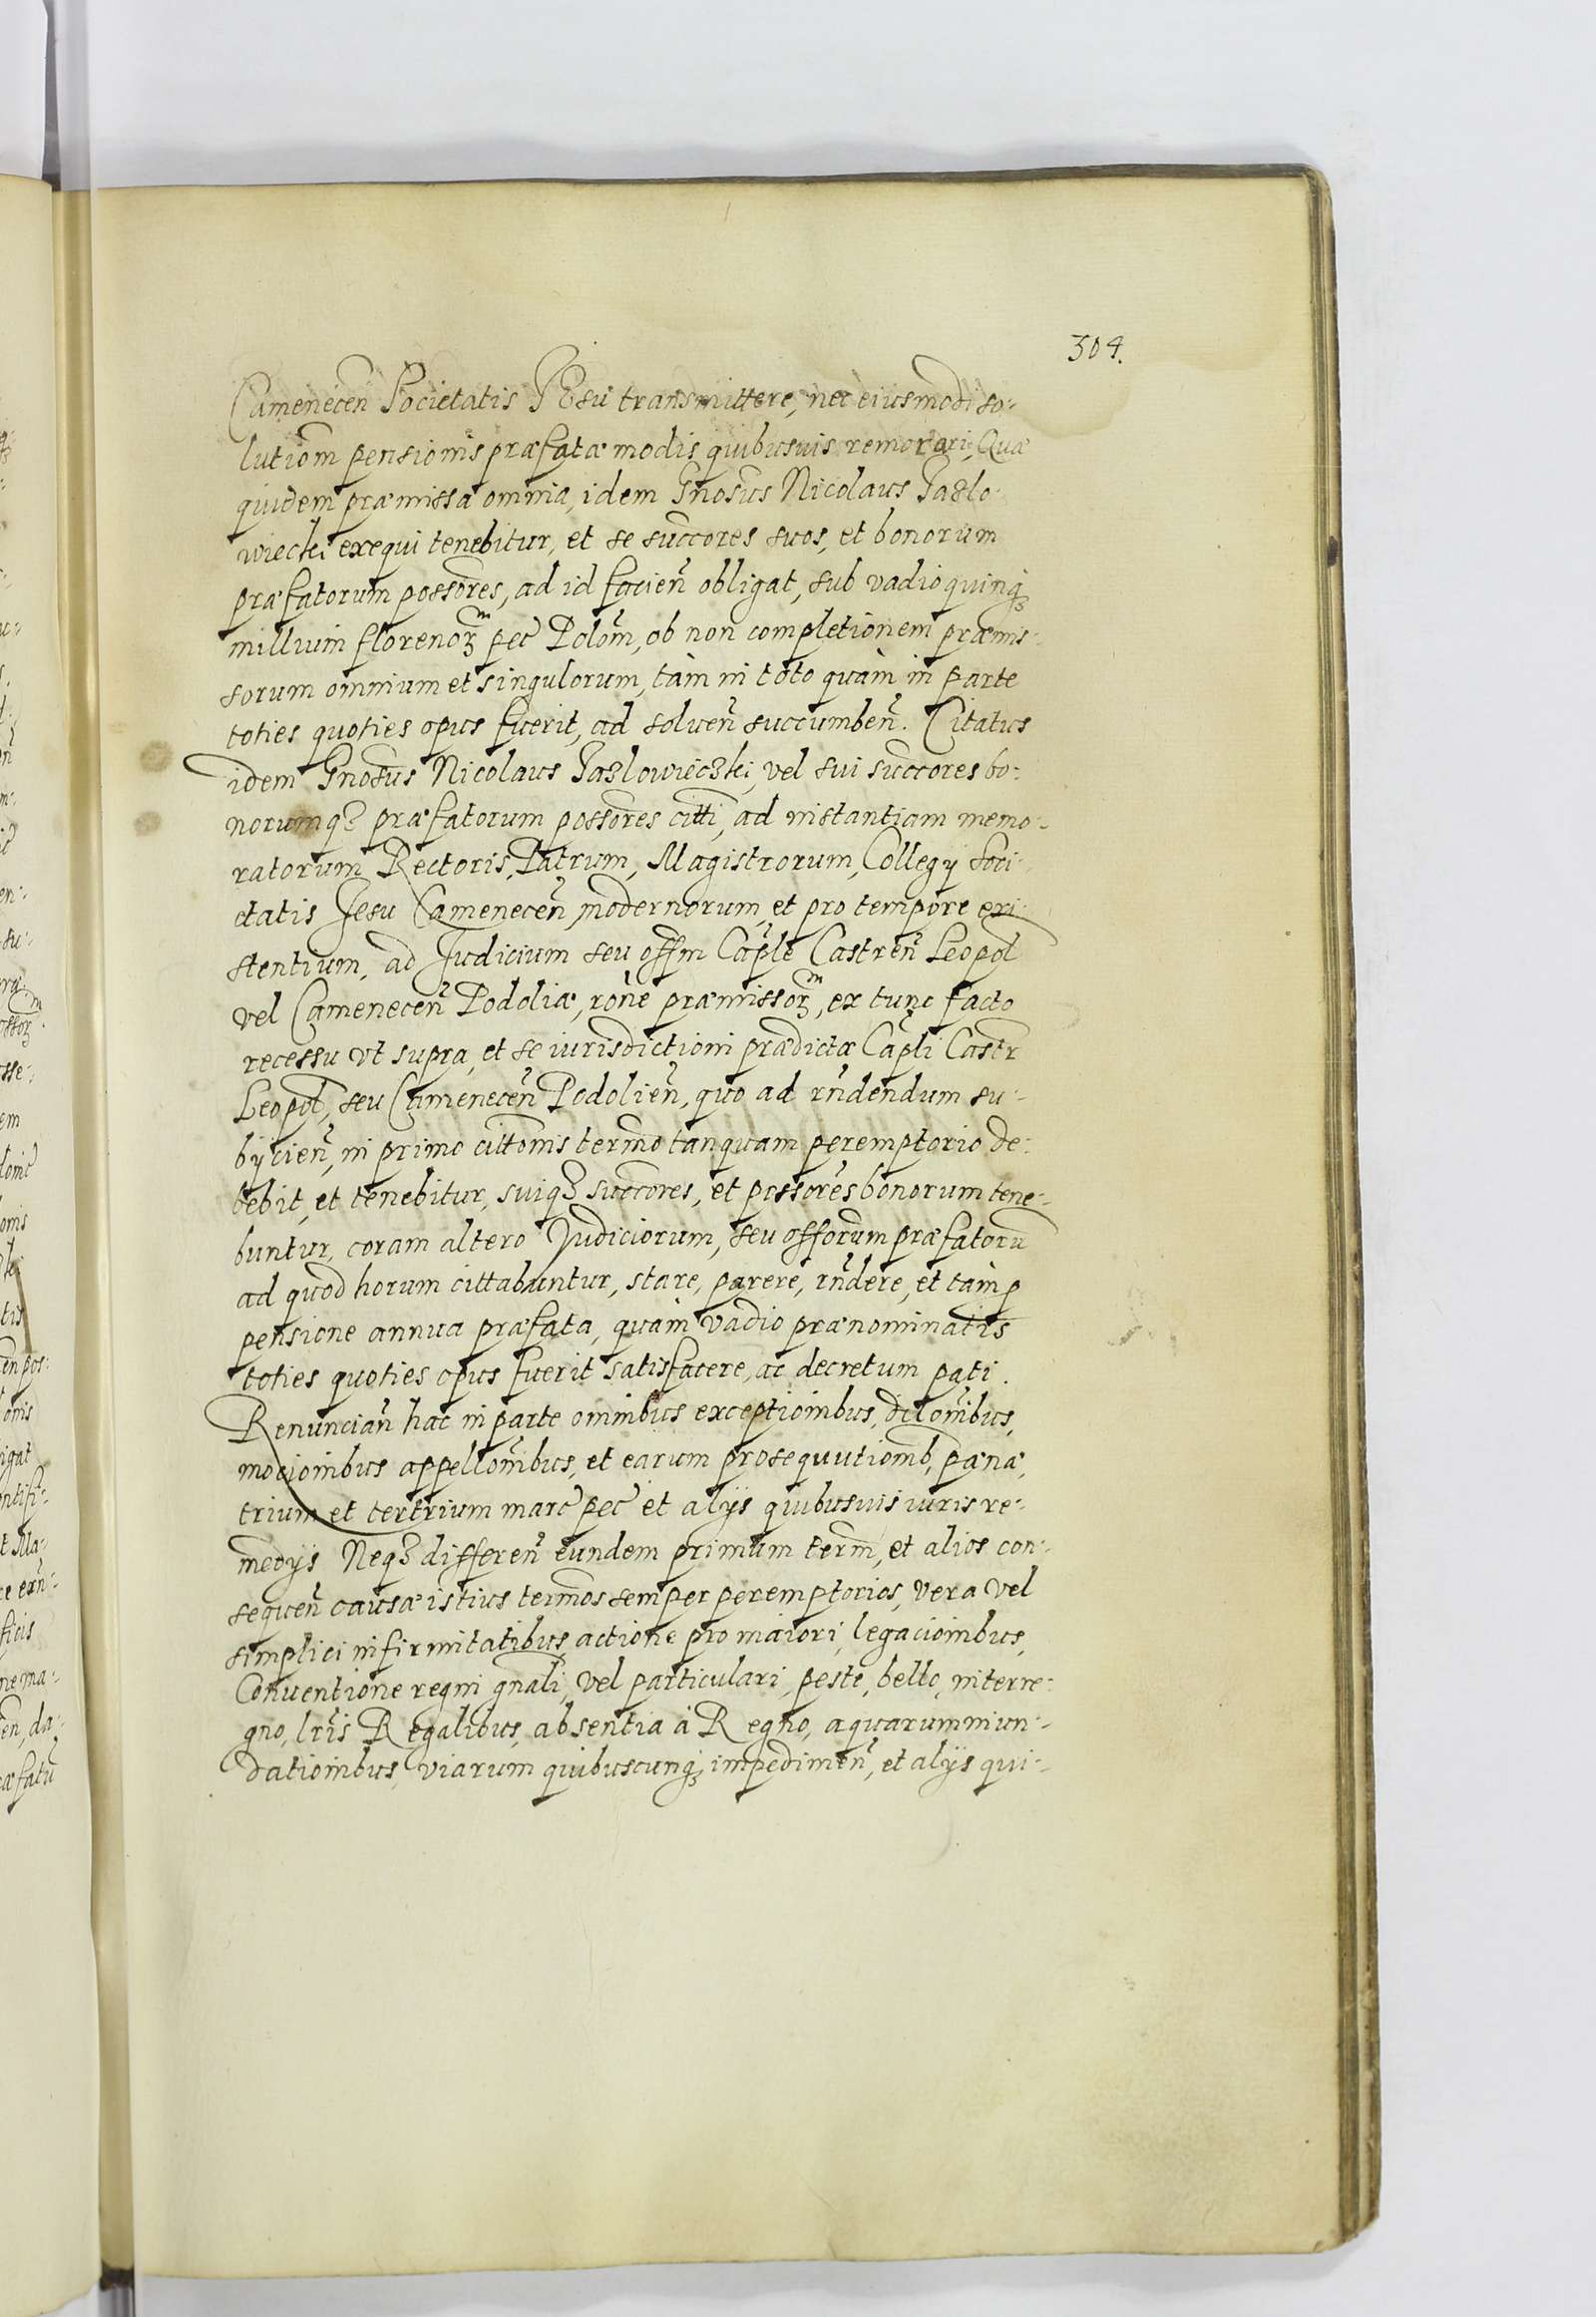 304.
Camenecen̄ Societatis IESu transmittere, nec eiusmodi so-
lutiom̄ pensionis præfatæ modis quibusuis remorari, Quæ
quidem præmissa omnia, idem Gnosus Nicolaus Jazlo-
wiecki exequi tenebitur, et se succores suos, et bonorum
præfatorum possores, ad id facien̄ obligat, sub vadio quinq̨
millium florenoꝝ pec̄ Polōm, ob non completionem præmis-
sorum omnium et singulorum, tàm in toto quàm in parte
toties quoties opus fuerit, ad soluen̄ succumben̄. Citatus
idem Gnosus Nicolaus Jazlowieczki, vel sui succores bo-
norumqꝫ præfatorum possores citti, ad instantiam memo-
ratorum Rectoris, Patrum, Magistrorum, Collegij Soci-
etatis Jesu Camenecen̄ modernorum, et pro tempore exi-
stentium, ad Judicium seu offm Caple Castren̄ Leopol
vel Camenecen̄ Podoliæ, rōne præmissoꝝ, ex tunc facto
recessu vt supra, et se iurisdictioni prædictæ Capli Castr
Leopol, seu Camenecen̄ Podolien̄, quo ad rn̄dendum su-
bijcien̄, in primo cittōnis termō tanquam peremptorio de-
bebit, et tenebitur, suiqꝫ succores, et possores bonorum tene-
buntur, coram altero Judiciorum, seu offōrum præfatorū
ad quod horum cittabuntur, stare, parere, rn̄dere, et tàm p
pensione annua præfata, quàm vadio prænominatis
toties quoties opus fuerit satisfacere, ac decretum pati.
Renuncian̄ hac in parte omnibus exceptionibus, dilōnibus,
mocionibus appellōnibus, et earum prosequutiōnib, pænæ,
trium et tertrium marc̄ pec̄ et alijs quibusuis iuris re-
medijs Neqꝫ differen̄ eundem primum term̄, et alios con-
sequen̄ causæ istius termōs semper peremptorios, vera vel
simplici infirmitatibus, actione pro maiori, legacionibus,
Conuentione regni gnāli, vel particulari, peste, bello, interre-
gno, lris Regalibus, absentia à Regno, aquarum inun-
dationibus, viarum quibuscunq̨ impedimen̄, et alijs qui-